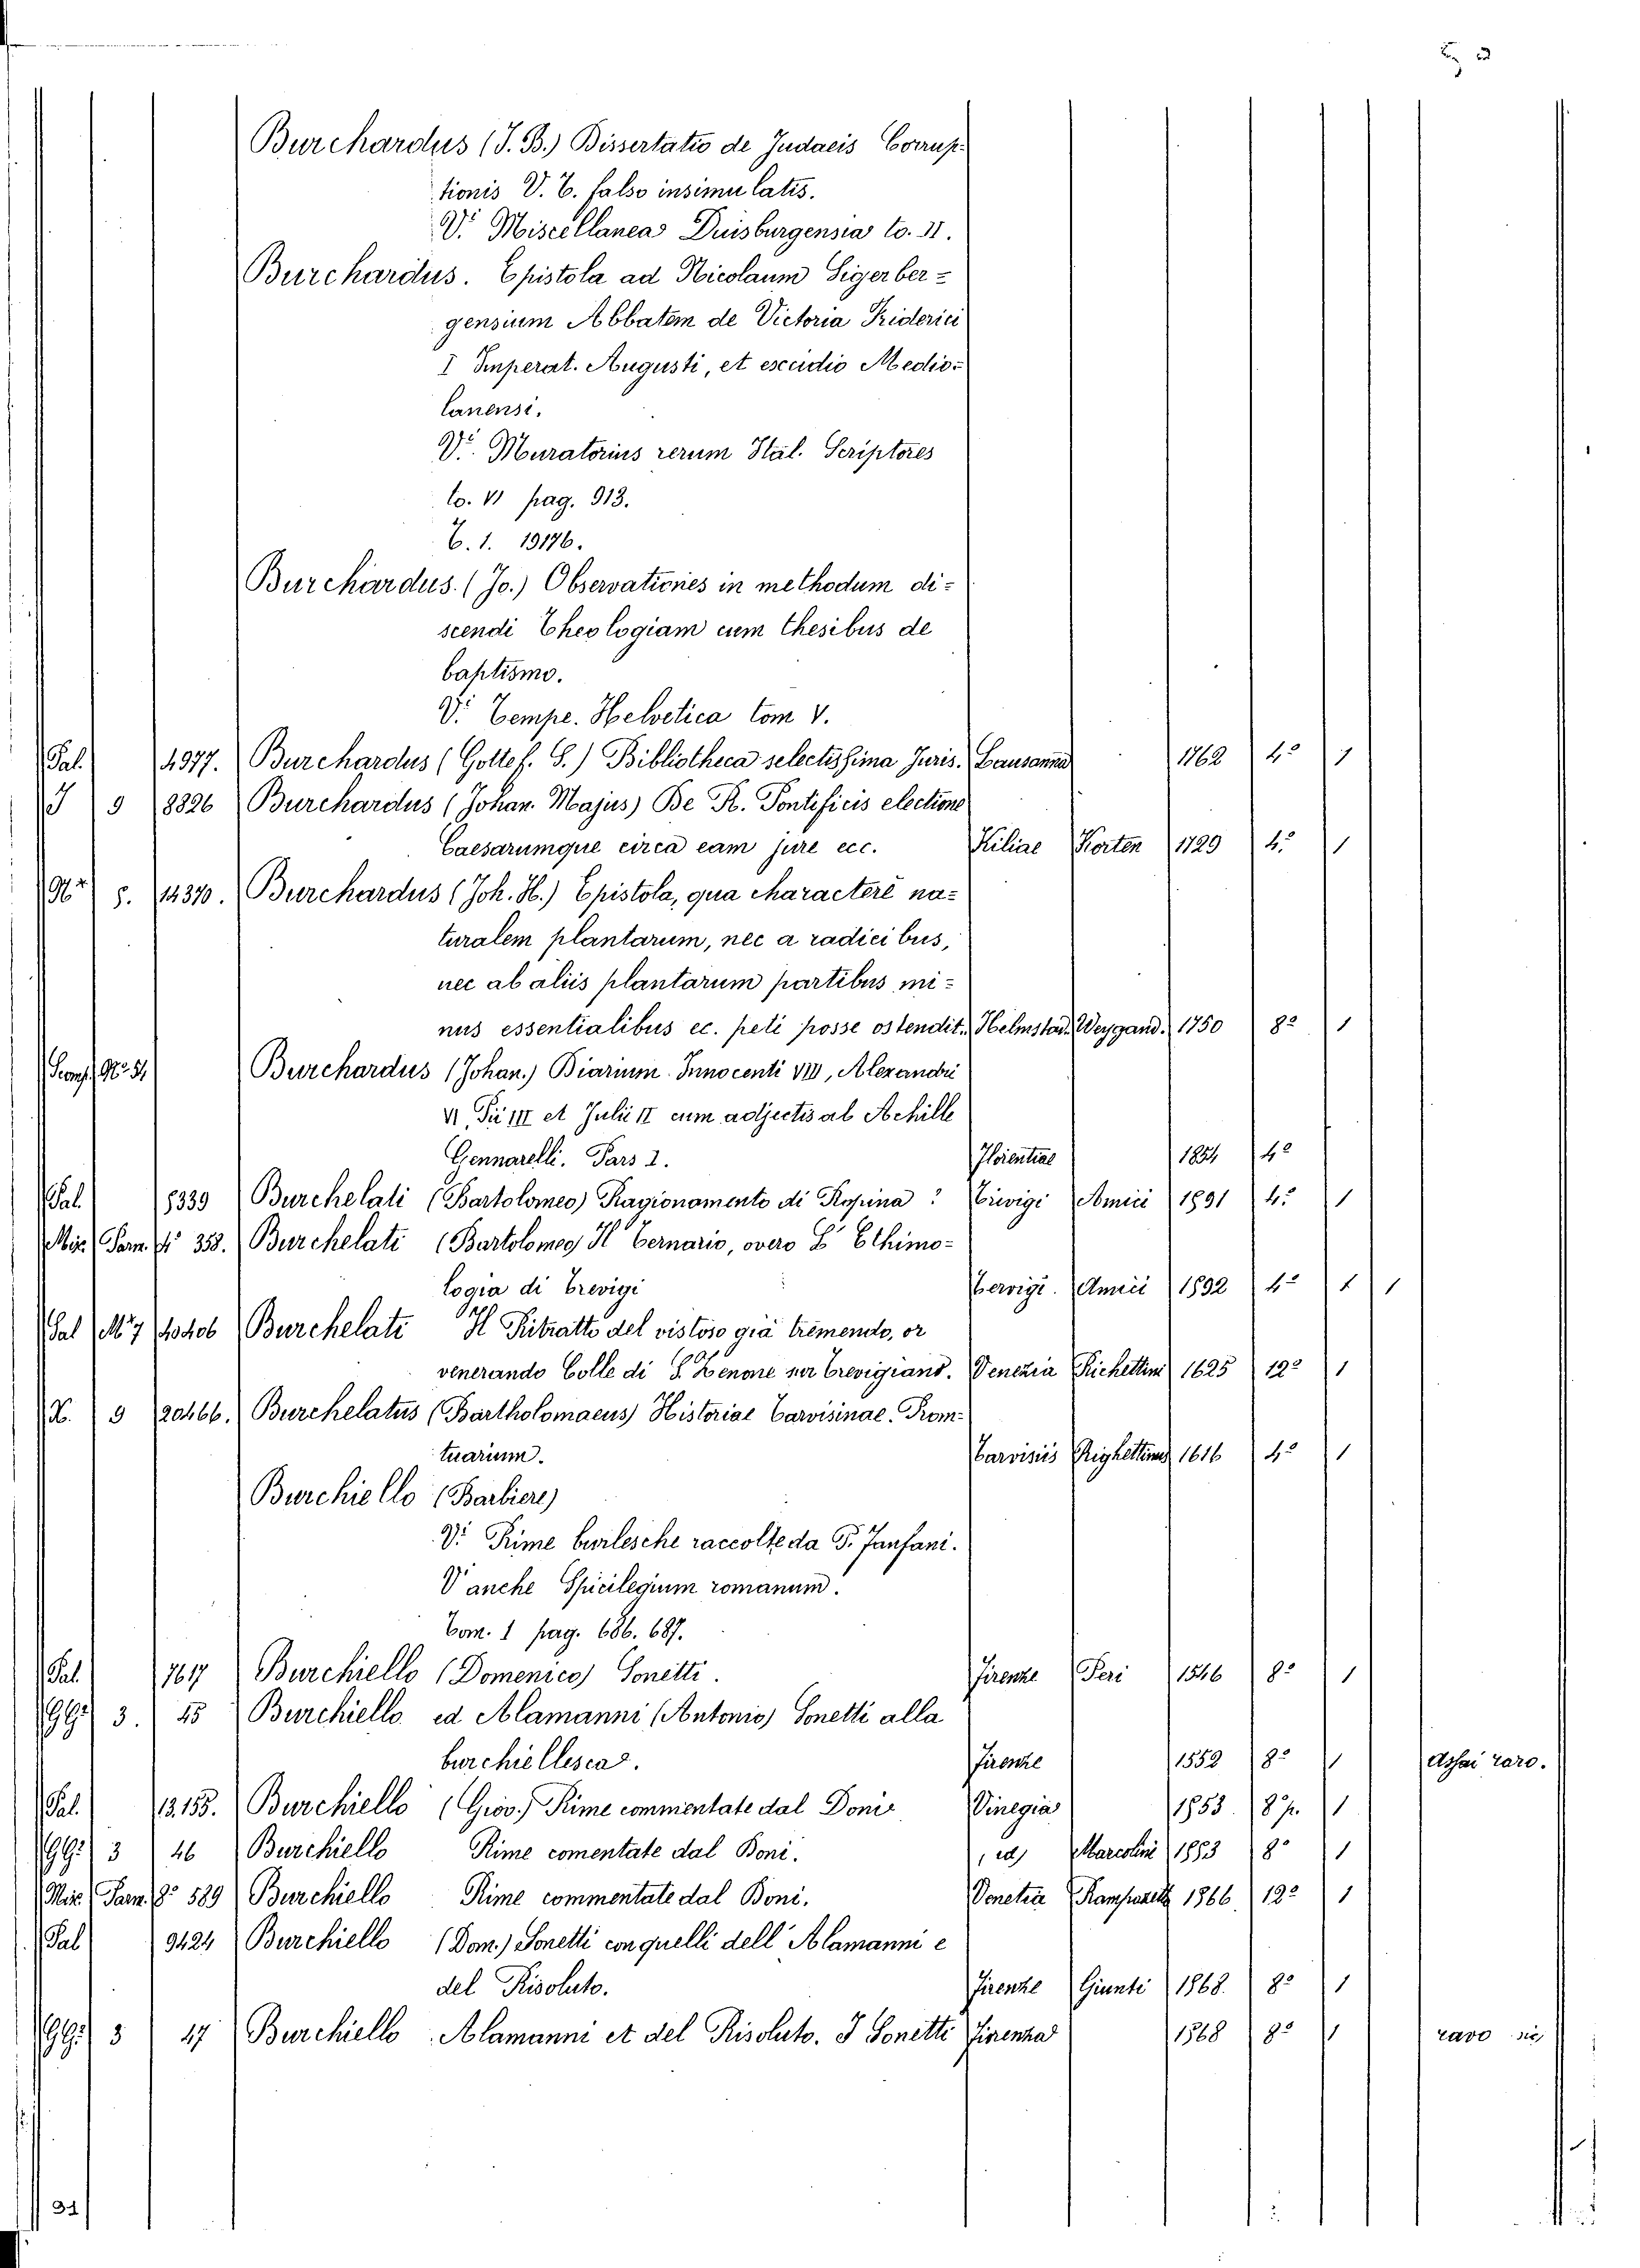 Burchardus (J. B.) Dissertatio de Judaeis Corrup-
tionis V. T. falso insimulatis.
Vi Miscellanea Duisburgensia to. II.
Burchardus. Epistola ad Nicolaum Sigerber=
gensium Abbatem de Victoria Friderici
I Imperat. Augusti, et escidio Medio=
lanensi.
Vi Muratorius rerum Ital. Scriptores
to. VI pag. 913.
T. 1. 19176.
Burchardus. (Jo.) Observationes in methodum di=
scendi Theologiam cum thesibus de
baptismo.
Vi Tempe. Helvetica tom V.
Pal. 4977. Burchardus (Gottef. S.) Bibliotheca selectissima Juris. Lausanna 1762 4o 1
J 9 8826 Burchardus (Johan. Majus) De R. Pontificis electione
Caesarumque circa eam jure ecc. Kiliae Korten 1729 4o 1
8. 14370. Burchardus (Joh. H.) Epistola, qua charactere na=
turalem plantarum, nec a radicibus,
nec ab aliis plantarum partibus mi=
nus essentialibus ec. peti posse ostendit. Helmstad. Weygand. 1750 8o 1
Burchardus (Johan.) Diarium Innocenti VIII, Alexandri
VI, Pii III et Julii II cum adjectis ab Achille
Gennarelli. Pars I. Florentiae 1854 4o
Pal. 8339 Burchelati (Bartolomeo) Ragionamento di Ropina: Trivigi Amici 1891 4o 1
Mis. Parn. 4o 358. Burchelati (Bartolomeo) Il Ternario, overo L' Ethimo=
logia di Trevigi Tervigi. Amici 1892 4o 1 1
Pal Mo 7 40406 Burchelati Il Ritratto del vistoso già tremendo, or
venerando Colle di S. Zenone sur Trevigiano. Venezia Richettini 1625 12o 1
X. 9 20466. Burchelatus (Bartholomaeus) Historiae Tarvisinae. Prom-
tuarium. Tarvisiis Righettinus 1616 4o 1
Burchiello (Barbiere)
Vi Rime burlesche raccolte da P. Fanfani.
V anche Spicilegium romanum.
Tom. 1 pag. 686. 687.
Pal. 7617 Burchiello (Domenico) Sonetti. Firenze Peri 1546 8o 1
GG. 3. 45 Burchiello ed Alamanni (Antonio) Sonetti alla
burchiellesca. Firenze 1552 8o 1 Assai raro.
Pal. 13.155. Burchiello (Giov.) Rime commentate dal Doni Vinegia 1553. 8 p. 1
GG. 3 46 Burchiello Rime comentate dal Doni. id Marcolini 1553 8o 1
Mis. Parn. 8o 589 Burchiello Rime commentate dal Doni. Venetia 1566 12o 1
Pal 9424 Burchiello (Dom.) Sonetti con quelli dell' Alamanni e
del Risoluto. Firenze Giunti 1568. 8o 1
GG. 3 47 Burchiello Alamanni et del Risoluto. I Sonetti Firenza 1568 8o 1 raro
31